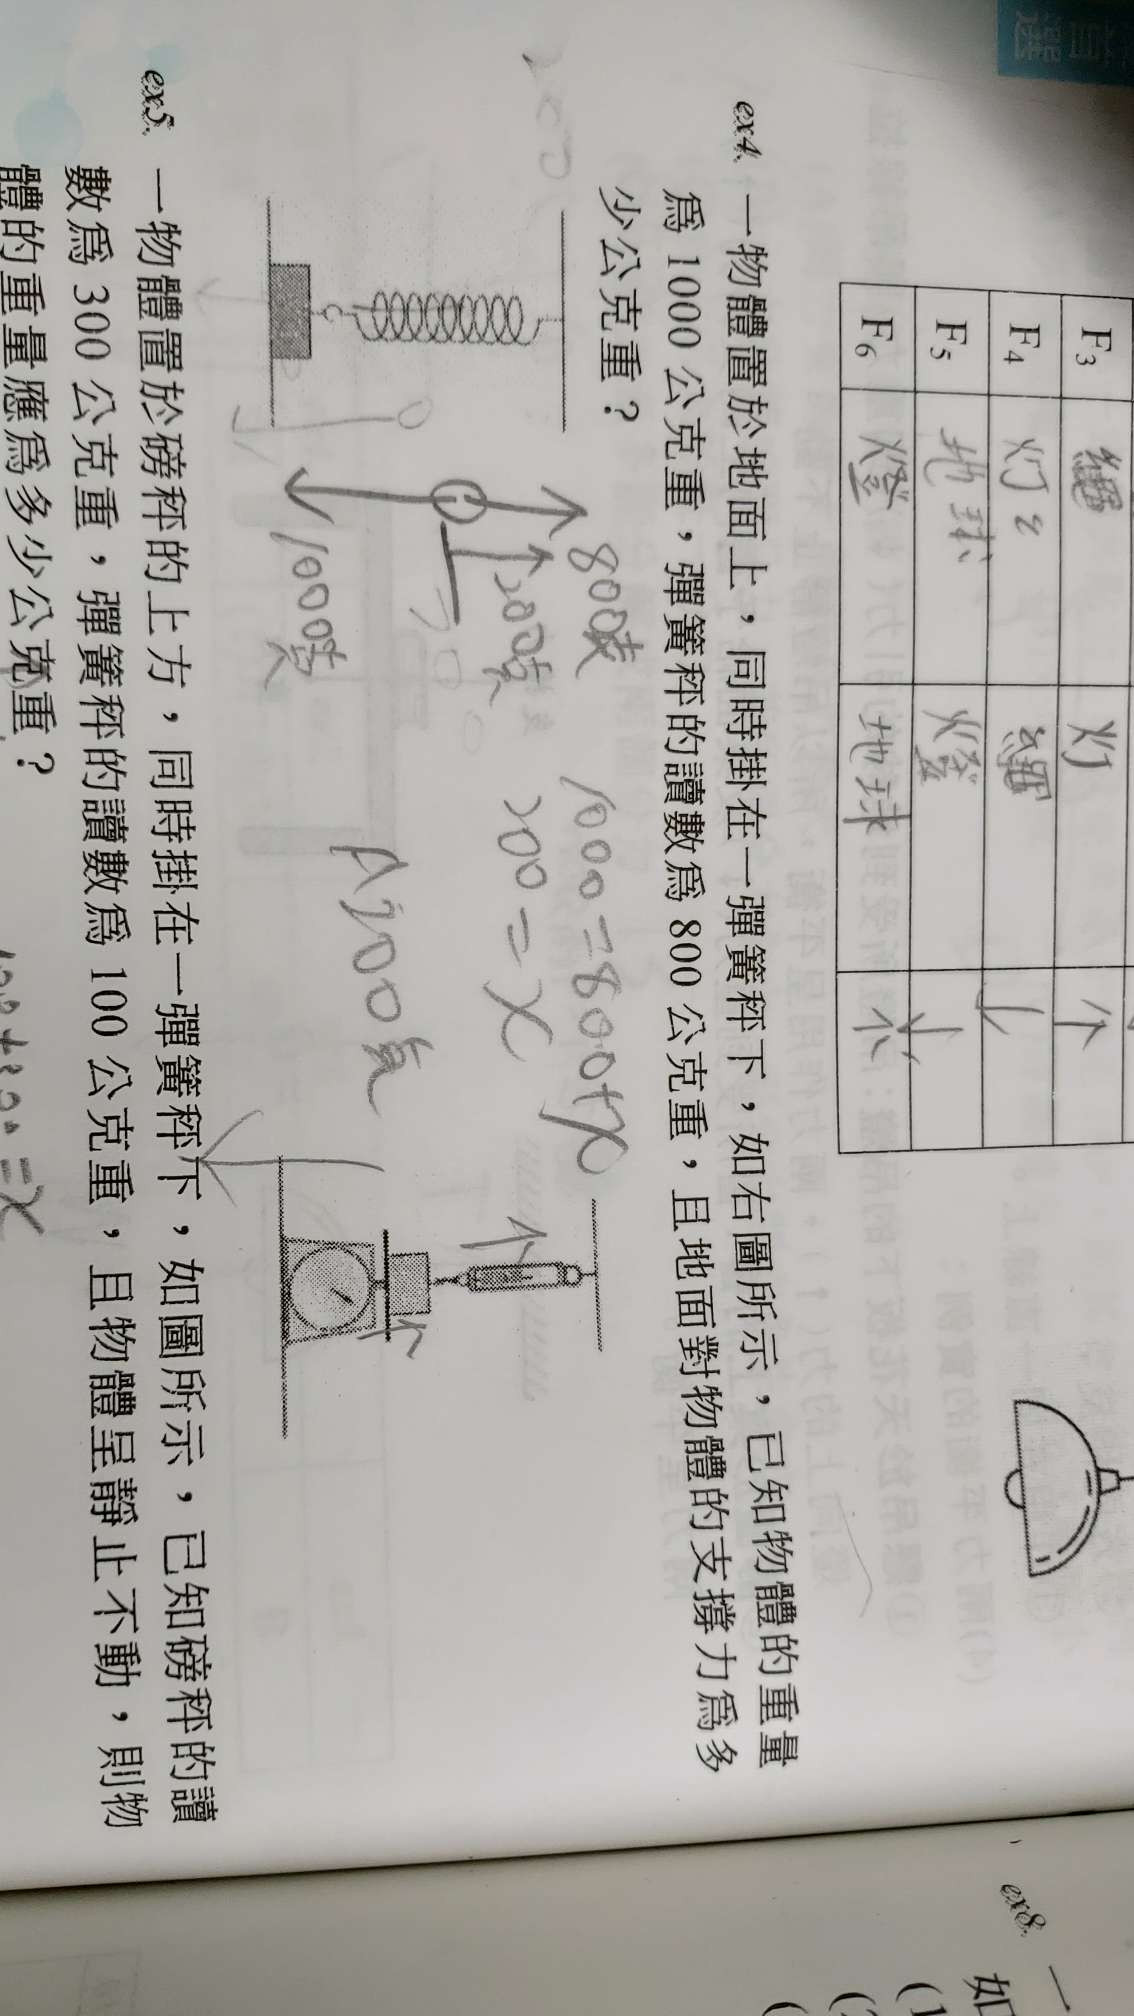 F3 繩 灯 ↑
F4 灯 繩 ↓
F5 地球 燈 ↓
F6 燈 地球 ↑
ex4. 一物體置於地面上，同時掛在一彈簧秤下，如右圖所示，已知物體的重量
為 1000 公克重，彈簧秤的讀數為 800 公克重，且地面對物體的支撐力為多
少公克重？
800克
200克
1000克
1000=800+x
200=x
A 200克
ex5. 一物體置於磅秤的上方，同時掛在一彈簧秤下，如圖所示，已知磅秤的讀
數為 300 公克重，彈簧秤的讀數為 100 公克重，且物體呈靜止不動，則物
體的重量應為多少公克重？
ex8.
一
如